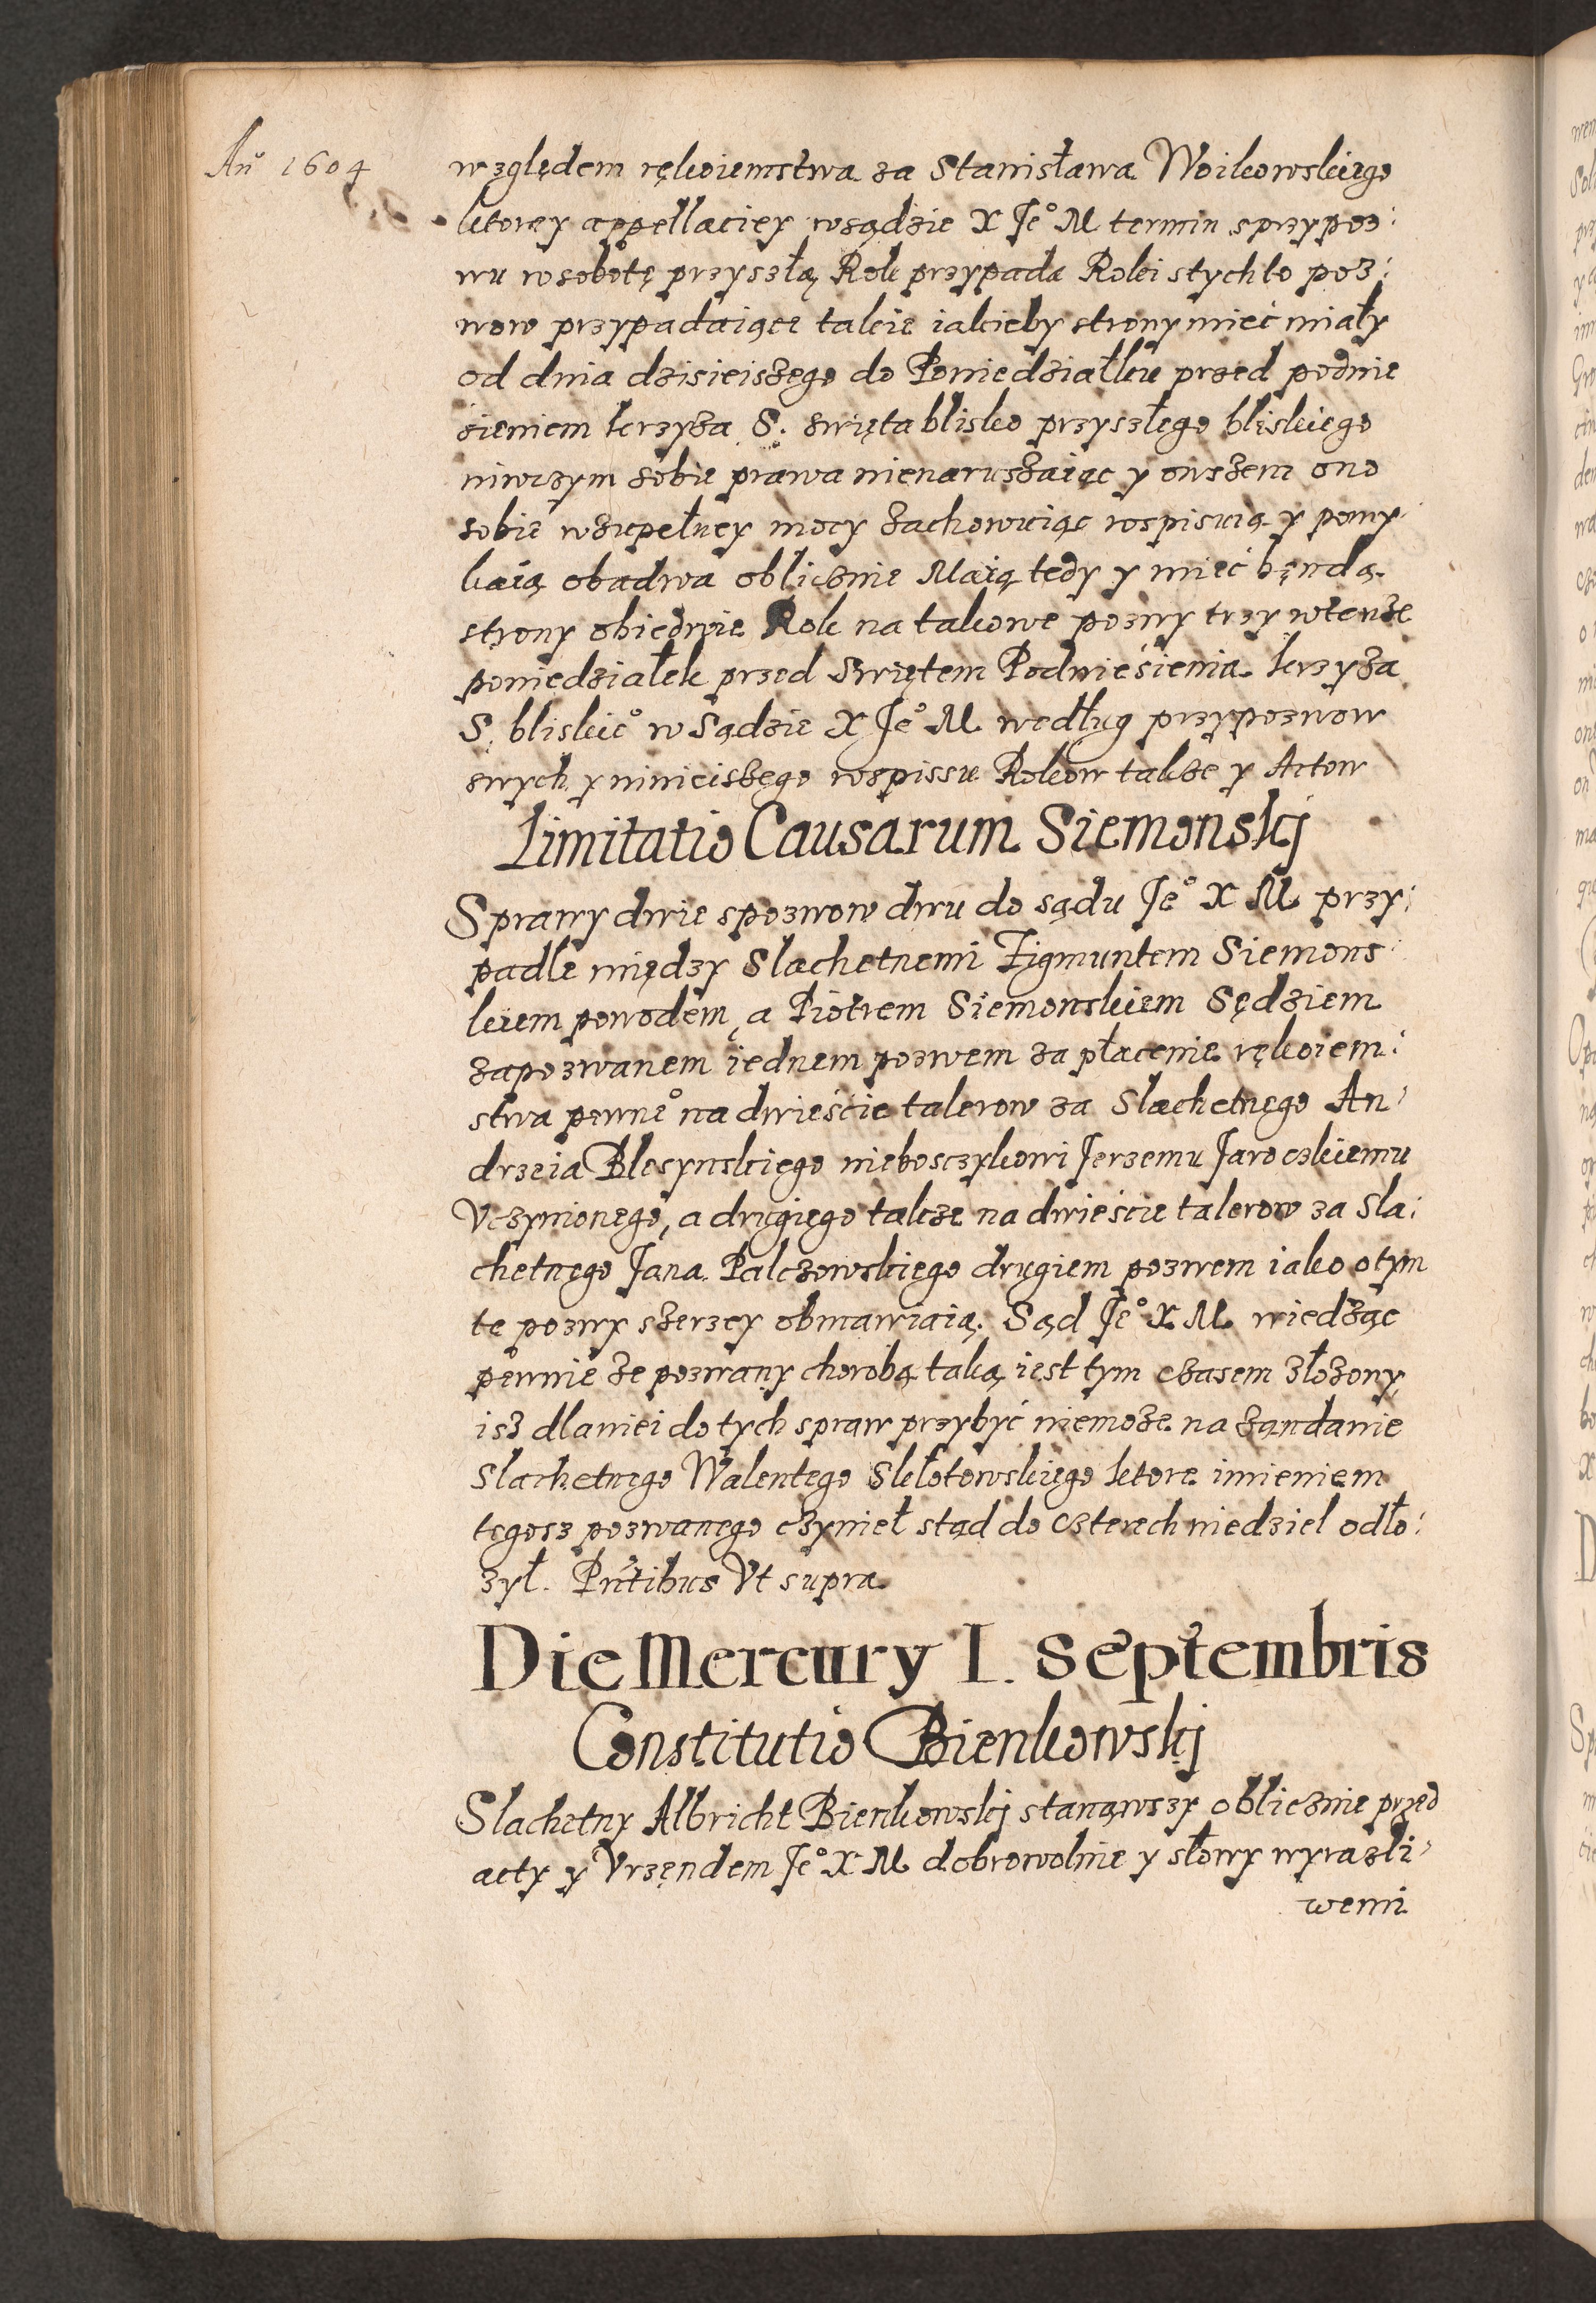 Añ 1604
względem rękoiemstwa za Stanisława Woikowskiego
ktorey appellaciey wsądzie X Je° M termin sprzypoz:
wu wsobotę przyszłą Rok przypada Roki stychto poz:
wow przypadaiące takie iakieby strony mieć miały
od dnia dzisieiszego do Poniedziałku przed podnie
sieniem krzyża S. święta blisko przyszłego bliskiego
niwczym sobie prawa nienaruszaiąc y owszem ono
sobie wzupełney mocy zachowuiąc rospisuią y pomy
kaią obadwa oblicznie Maią tedy y mieć będą
strony obiedwie Rok na takowe pozwy trzy wtenże
poniedziałek przed Swiętem Podnieśienia krzyża
S. bliskie° w Sądzie X Je° M. według przypozwow
swych y ninieiszego rospissu Rokow także y Actow
Limitatio Causarum Siemonskj
Sprawy dwie spozwow dwu do sądu Je° X M przy:
padłe między Slachetnemi Zigmuntem Siemons
kiem powodem, a Piotrem Siemonskiem Sędziem
zapozwanem iednem pozwem za płacenie rękoiem:
stwa pewne° na dwieście talerow za Slachetnego An:
drzeia Blesynskiego nieboszczykowi Jerzemu Jaroczkiemu
Vczynionego, a drugiego także na dwieście talerow za Sla:
chetnego Jana Palczowskiego drugiem pozwem iako otym
te pozwy szerzey obmawiaią. Sąd Je° X. M. wiedząc
pewnie że pozwany chorobą taką iest tym czasem złożony,
isz dlaniei do tych spraw przybyć niemoże na żandanie
Slachetnego Walentego Skłotowskiego ktore imieniem
tegosz pozwanego czynieł stąd do czterech niedziel odło:
żył. Pñtibus Vt supra
Die Mercury I. Septembris
Constitutio Bienkowskj
Slachetny Albricht Bienkowskj stanąwszy oblicznie przed
acty y Vrzęndem Je° X M dobrowolnie y słowy wyrazli:
wemi